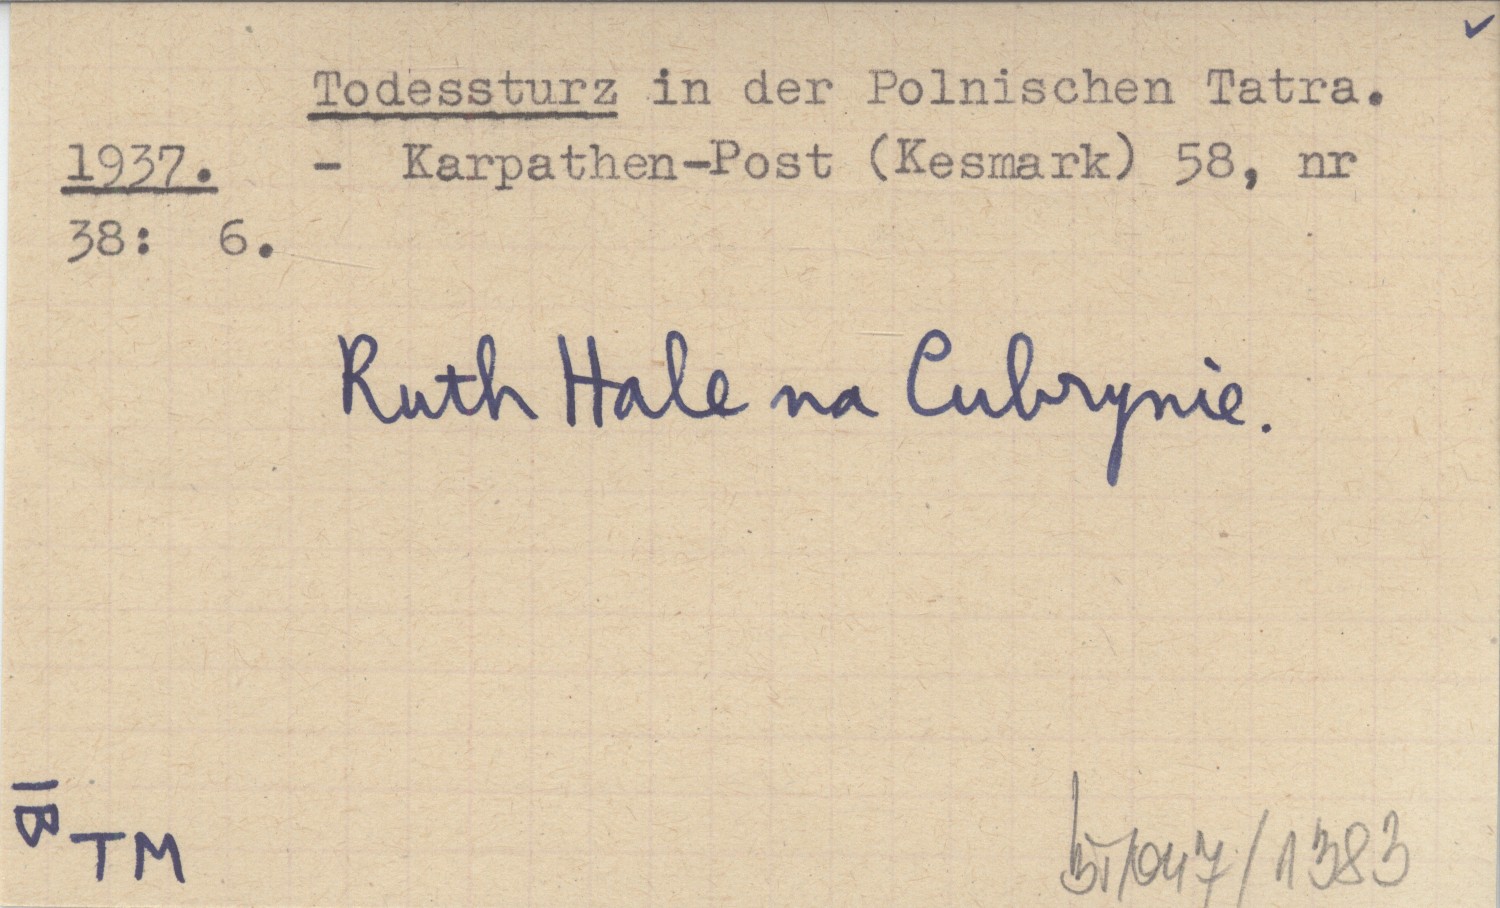 Todessturz in der Polnischen Tatra.
1937. - Karpathen-Post (Kesmark) 58, nr
38: 6.
Ruth Hale na Cubrynie.
TM
/1383